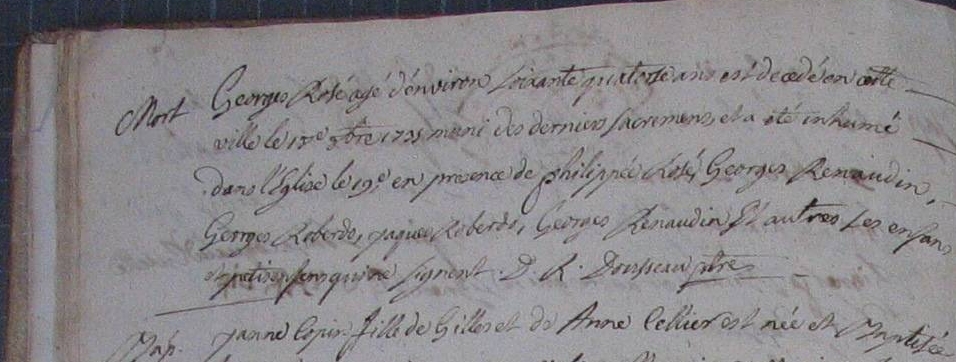 Mort Georges Rosé agé d'environ soixante quatorse ans est decedé en cette
ville le 18e 9bre 1735 muni des derniers sacremens, et a été inhumé
dans l'Eglise le 19e en presence de philippe Rosé, Georges Renaudin,
Georges Roberdo, jaques Roberdo, Georges Renaudin Et autres Ses enfans
et petits enfans qui ne signent. D. R. Dousseau ptre
Bap. Janne fille de Gilles et de Anne Cellier est née et Baptisée